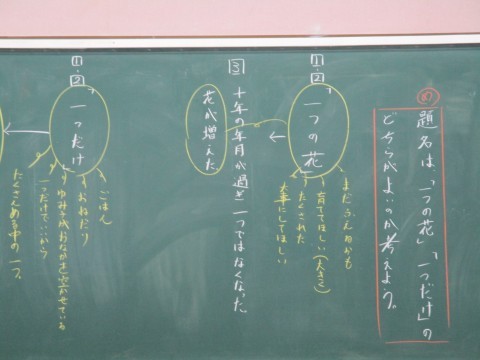 め
題名は、「一つの花」「一つだけ」の
どちらがよいのか考えよう。
①・②
「一つの花」
まだふんわかも
育ててほしい(大きく)
たくされた
大事にしてほしい
③ 十年の年月が過ぎ一つではなくなった。
花が増えた
①・②
「一つだけ」
ごはん
おねだり
ゆみ子がおなかを空かせている
一つだけでいいから
たくさんある中の一つ。